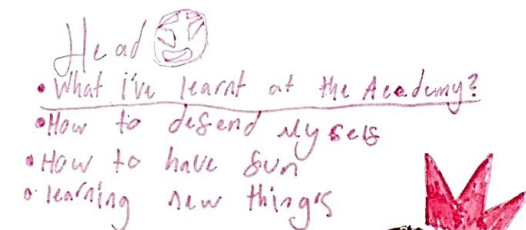 Head
• What i've learnt at the Academy?
• How to defend Myself
• How to have fun
• learning new things